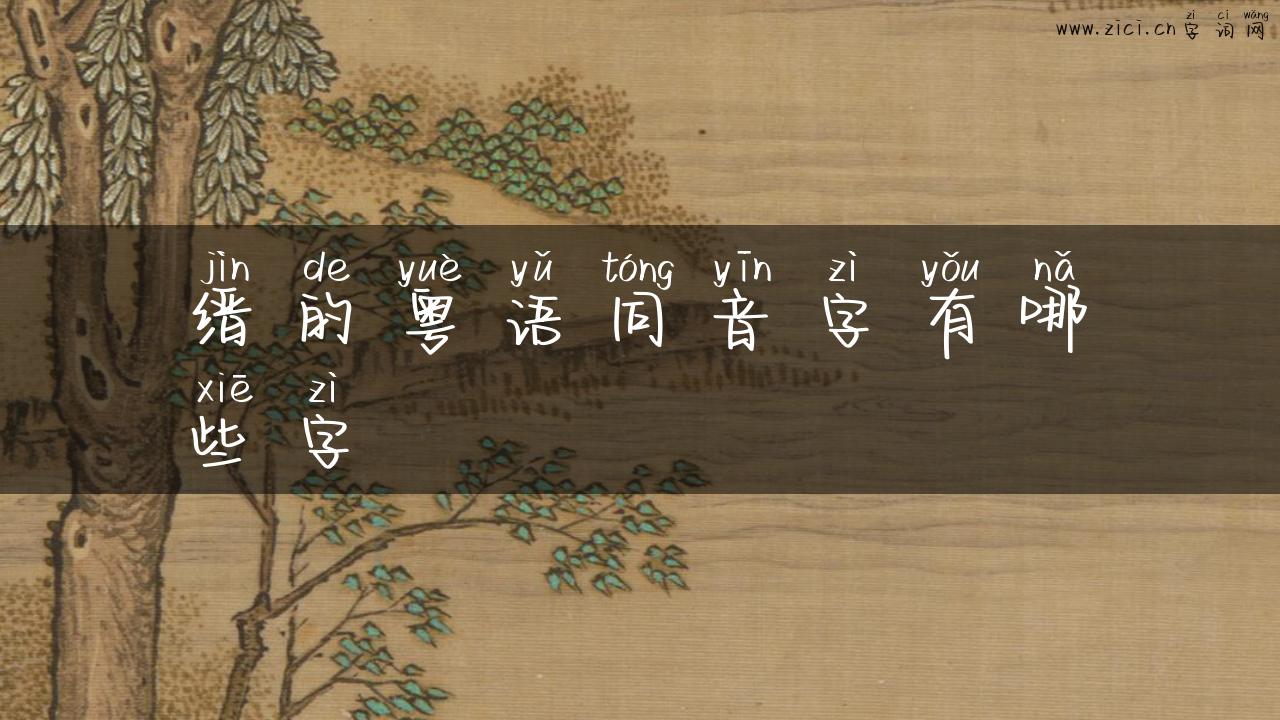 zì cí wǎng
www.zici.cn 字词网
jìn de yuè yǔ tóng yīn zì yǒu nǎ
缙的粤语同音字有哪
xiē zì
些字